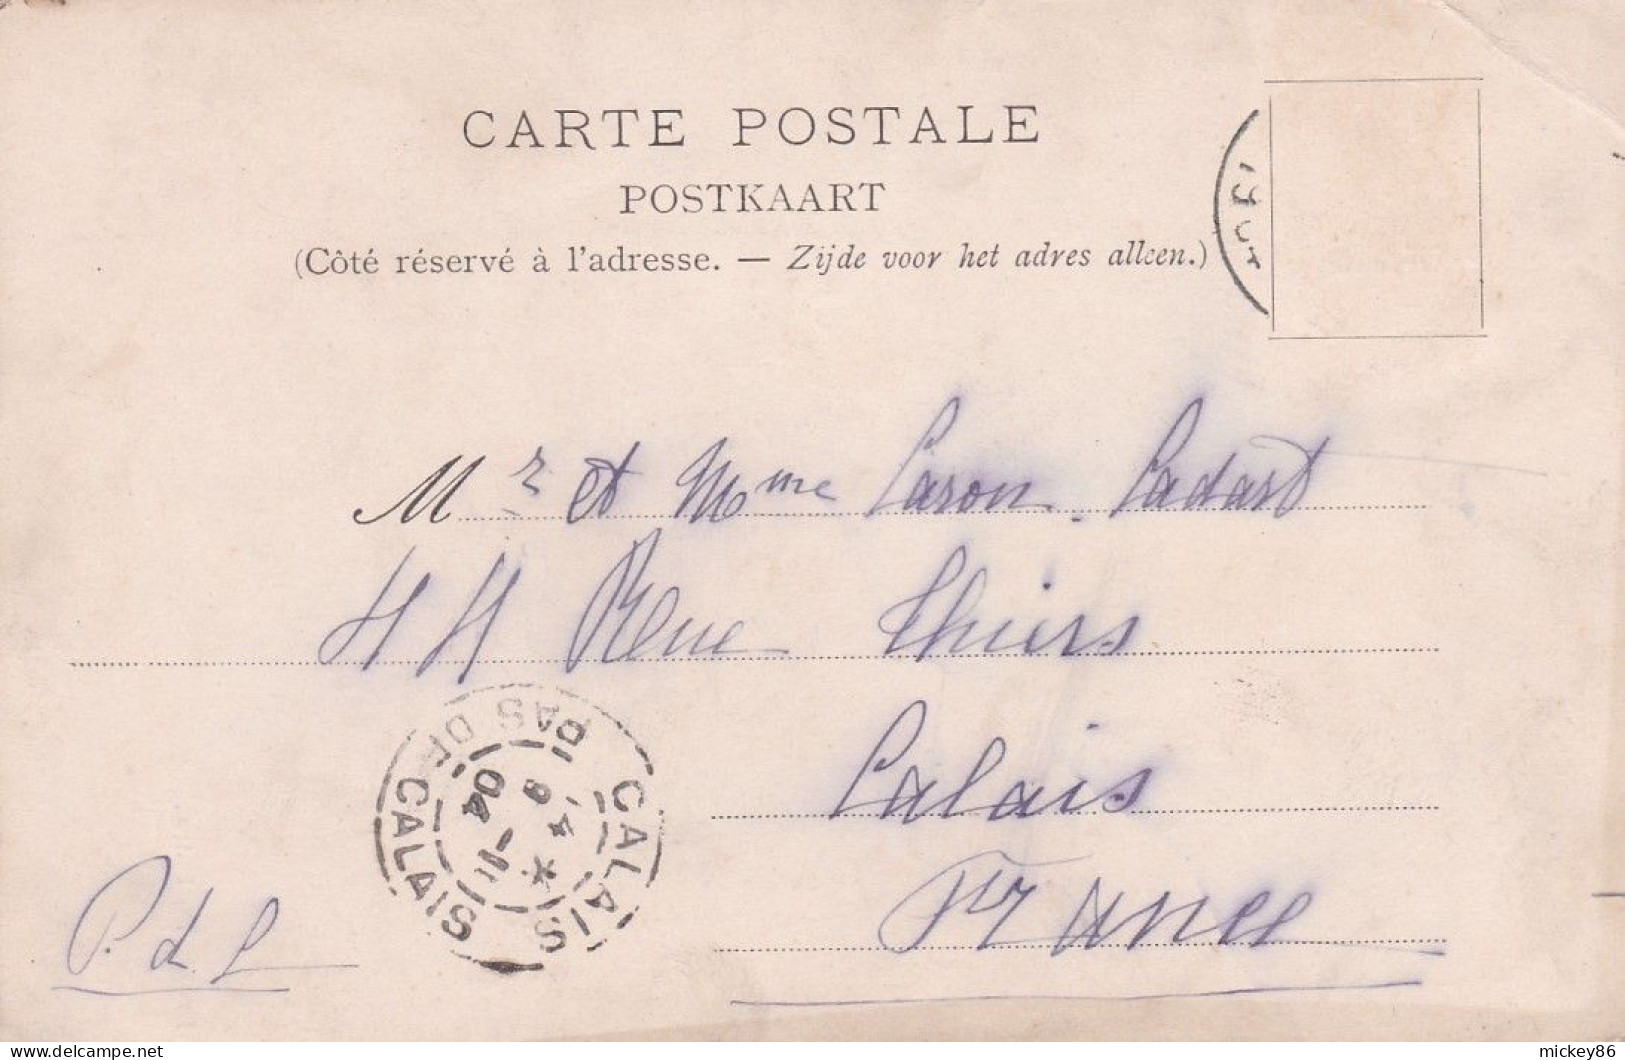 CARTE POSTALE
POSTKAART
(Côté réservé à l'adresse. — Zijde voor het adres alleen.)
Mr et Mme Caron. Cadart
44 Rue Thiers
Calais
France
P. d. C
CALAIS
PAS DE CALAIS
9 -11 04
delcampe.net
mickey86